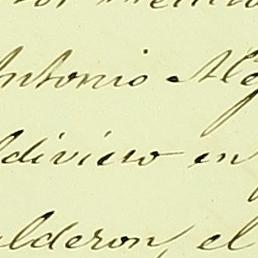 Antonio Al
ldivieso en
alderon, el